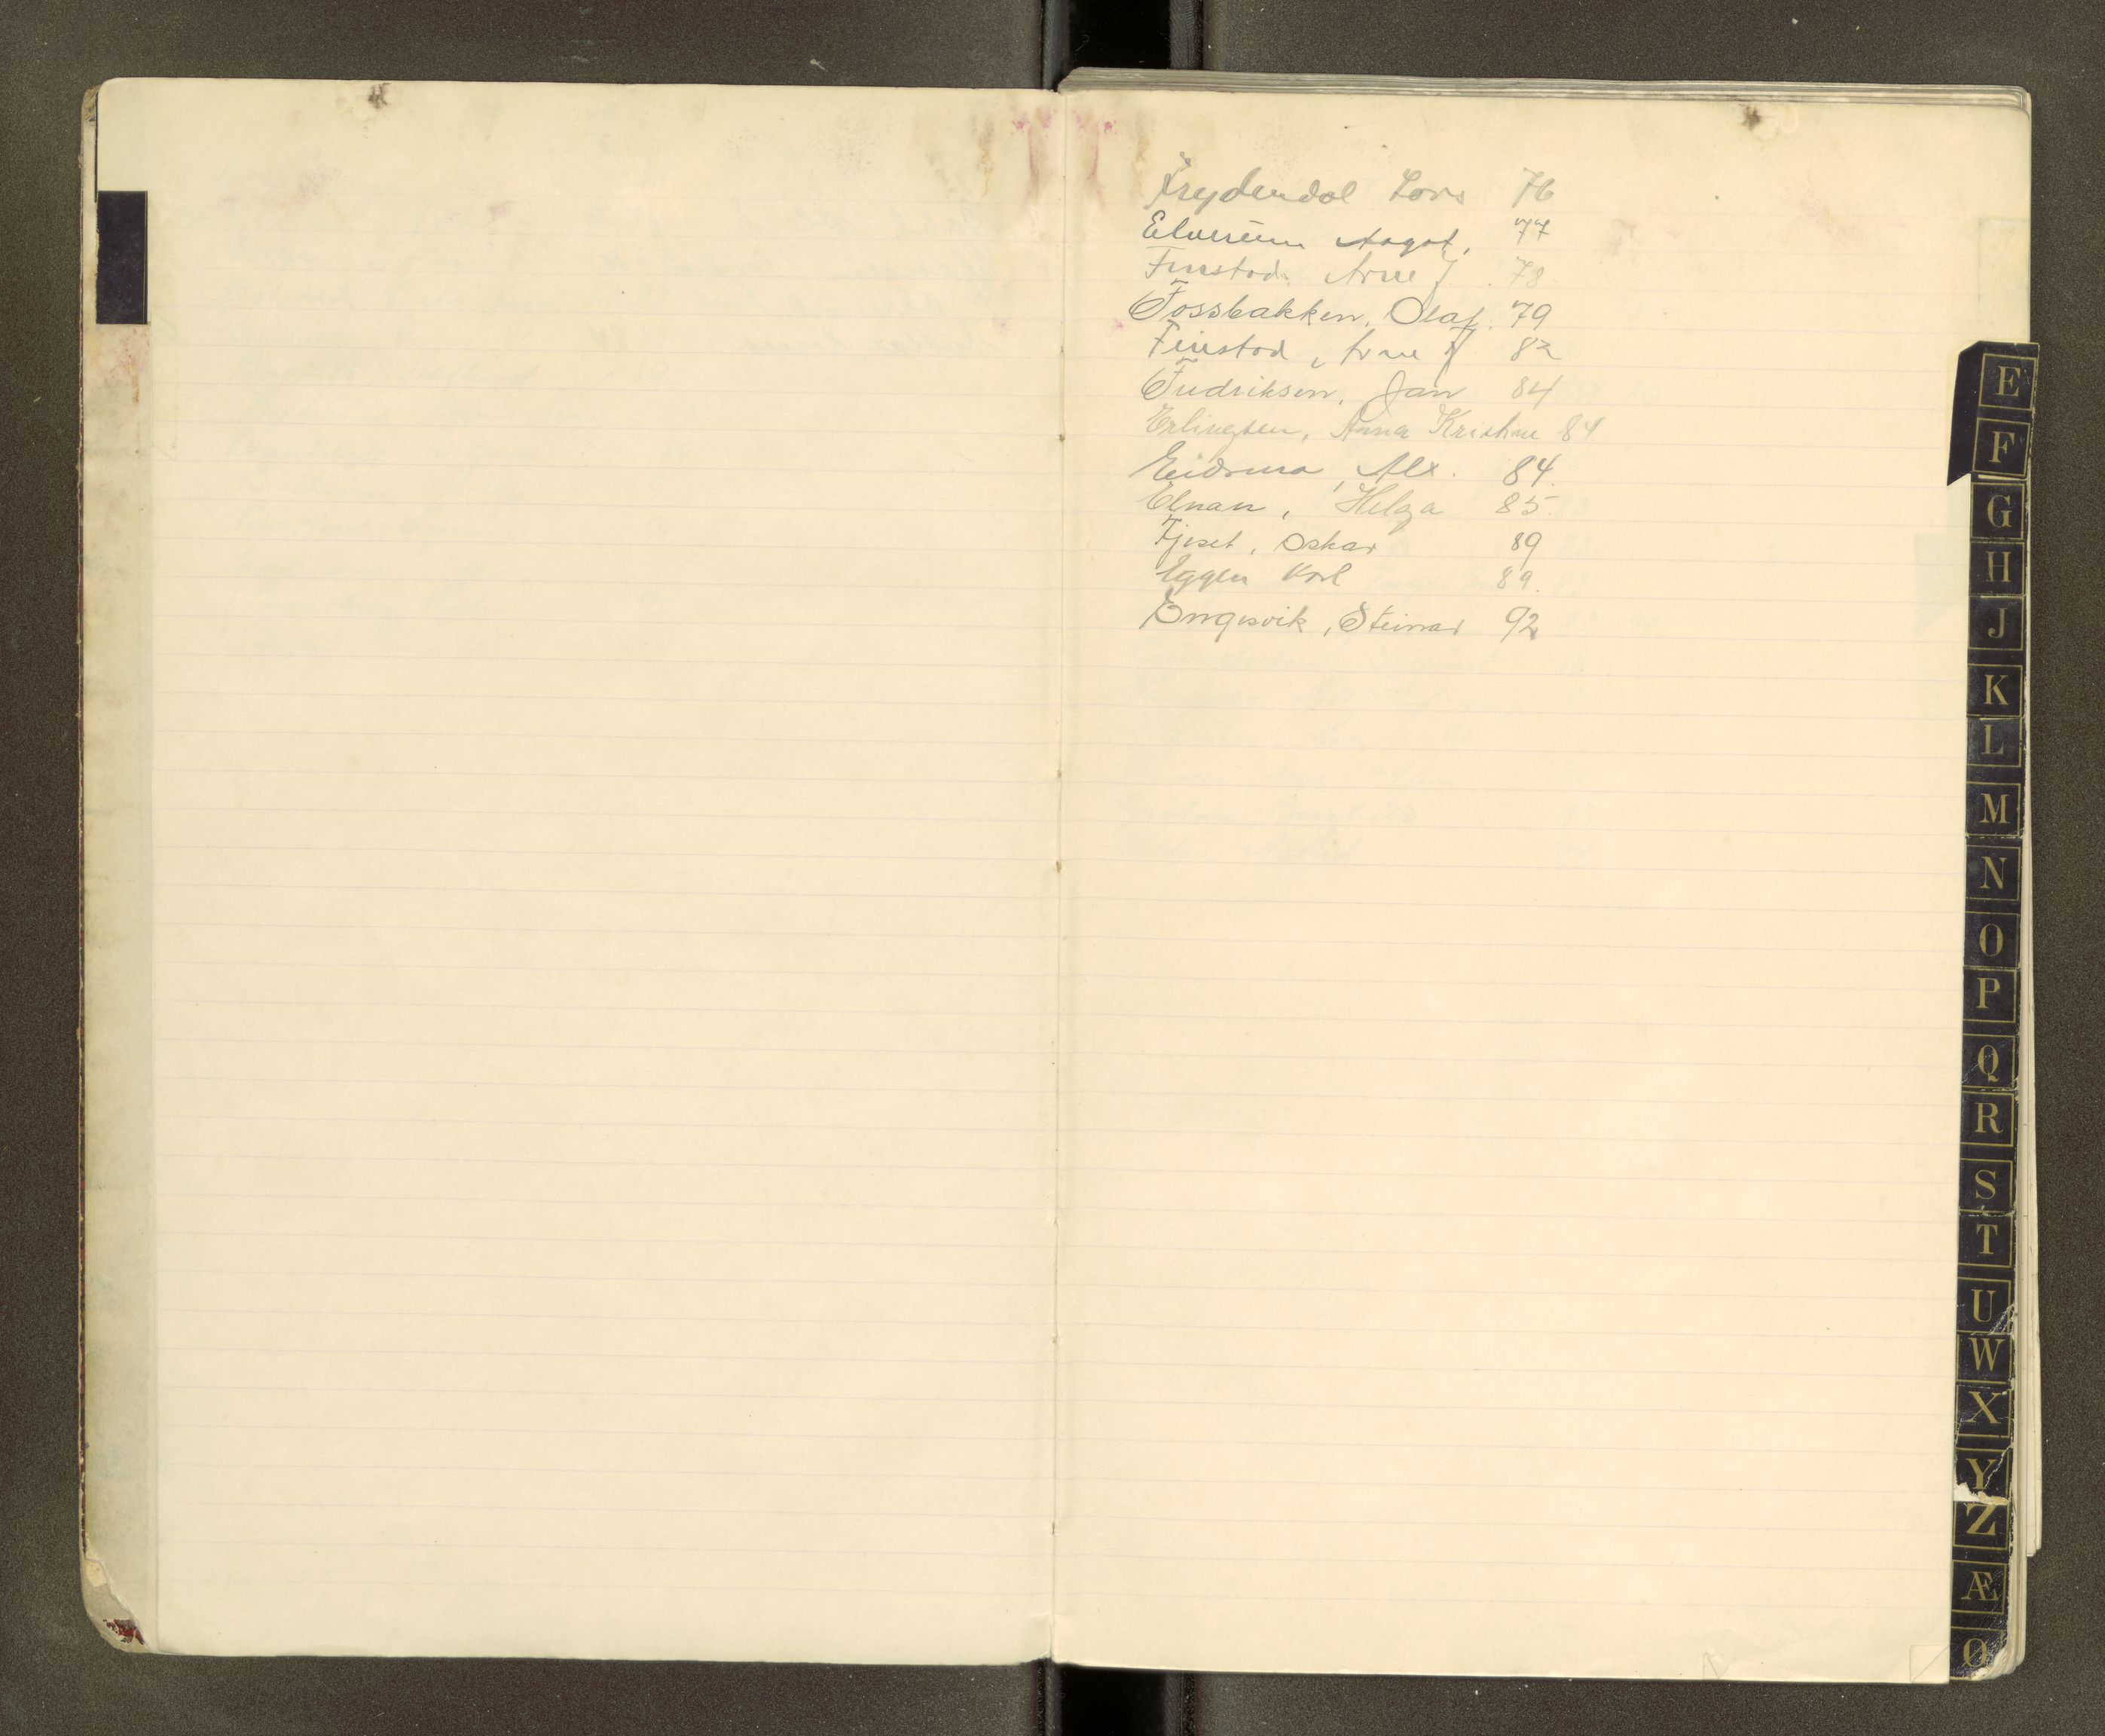 Frydendal Lars 76
Elverum Aagot, 77
Finstad. Arne J. 78.
Fossbakken, Olaf. 79
Finstad, Arne J 82
Fredriksen, Jan 84
Erlingsen, Anna Kristine 84
Eidsmo, Alx. 84.
Elnan, Helga 85.
Fjeset, Oskar 89
Eggen Karl 89.
Engesvik, Steinar 92
E
F
G
H
J
K
L
M
N
O
P
Q
R
S
T
U
W
X
Y
Z
Æ
Ø